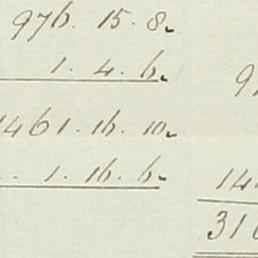 976. 15. 8.
1. 4. 6.
1461. 16. 10.
1. 16. 6.
9
14
310